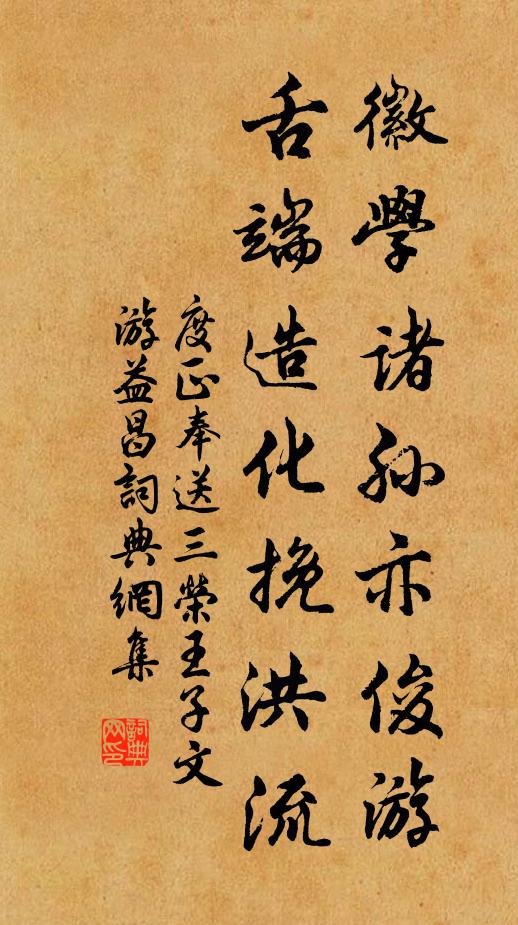 徽學諸孫亦俊游
舌端造化挽洪流
度正奉送三榮王子文
游益昌詞典網集
詞典網印